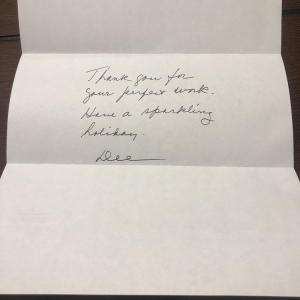 Thank you for
your perfect work.
Have a sparkling
holiday.
Dee